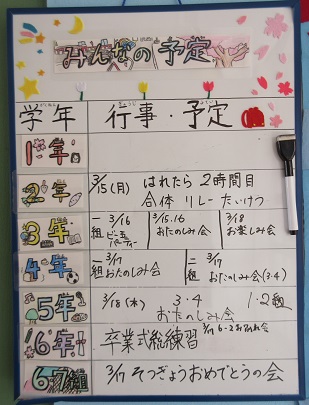 みんなの予定
学年 行事・予定
1年
2年 3/15(月) はれたら 2時間目
合体 リレー たいけつ
3年 一組 3/16 3/15.16 おたのしみ会 3/18 お楽しみ会
4年 一組 3/17 おたのしみ会 二組 3/17 おたのしみ会(3.4)
5年 3/18(木) 3.4 おたのしみ会 1.2組
6年 卒業式総練習 3/17 6-2お別れ会
6.7組 3/17 そつぎょうおめでとうの会